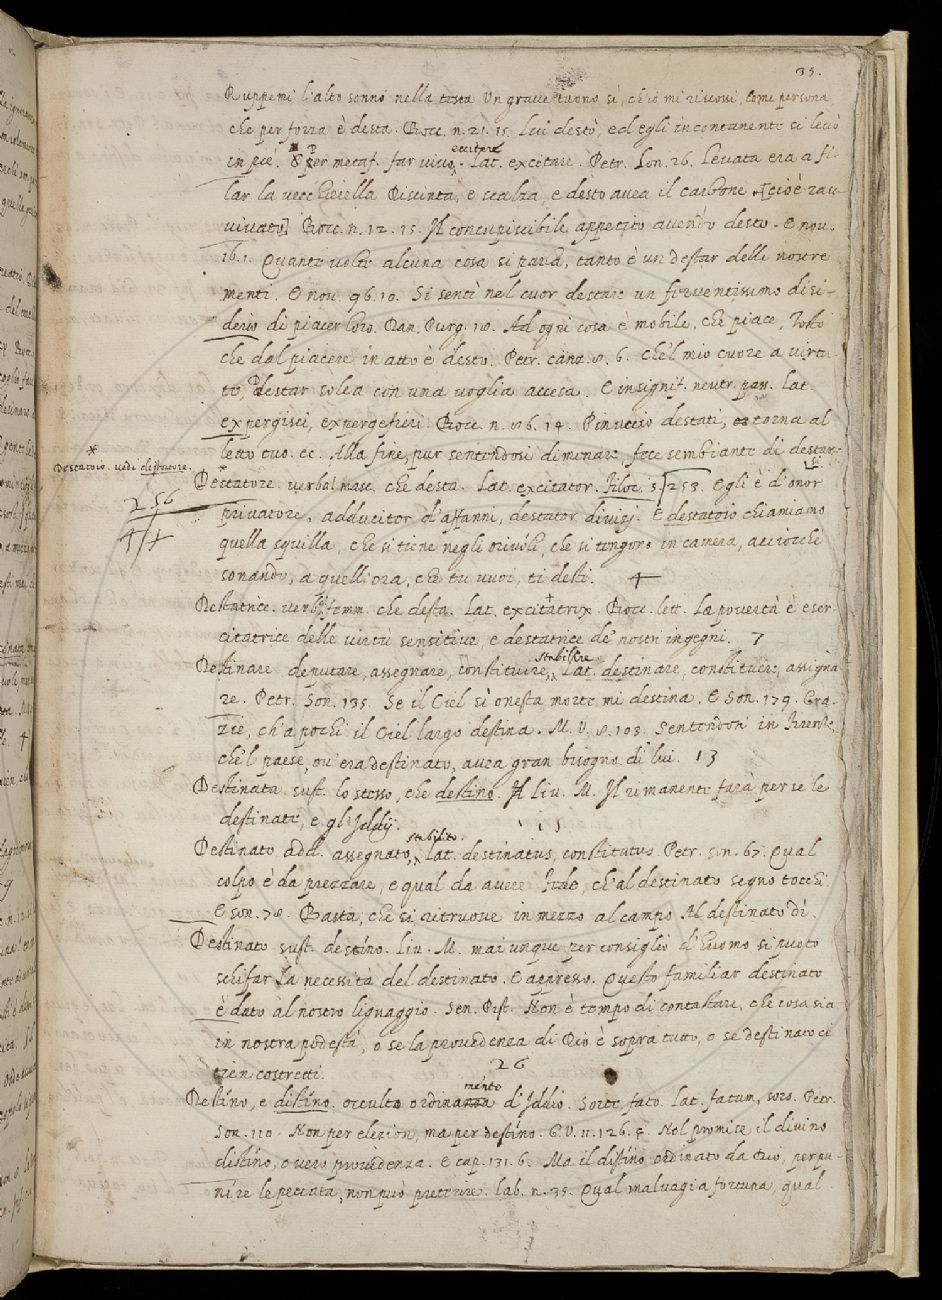 35.
Ruppemi l'alto sonno nella testa Un grave tuono sì, ch'io mi riscossi, Come persona,
che per forza è desta. Bocc. n. 21. 15. Lui destò, ed egli incontanente si levò
in piè. § Per metaf. far vivo, eccitare. Lat. excitare. Petr. Son. 26. Levata era a fi-
lar la vecchiciella Discinta, e scalza, e desto avea il carbone [cioè rav-
vivato] Bocc. n. 12. 15. Il concupiscibile appetito avendo desto. E nov.
16. 1. Quante volte alcuna cosa si parla, tanto è un destar delle nostre
menti. E nov. 96. 10. Si sentì nel cuor destare un ferventissimo disi-
derio di piacer loro. Dan. Purg. 18. Ad ogni cosa è mobile, che piace, Tosto
che dal piacere in atto è desto. Petr. canz. 8. 6. che'l mio cuore a virtu-
te, Destar solea con una voglia accesa. E in signif. neutr. pass. Lat.
expergisci, expergefieri. Bocc. n. 86. 14. Pinuccio destati, torna al
letto tuo. ec. Alla fine, pur sentendosi dimenare fece sembiante di destar-
si.
* Destatoio. vedi destatore.
256
4 +
* Destatore. verbal masc. che desta. Lat. excitator. Filoc. 5. 253. Egli è d'onor
privatore, adducitor d'affanni, destator di vizj. E destatoio chiamiamo
quella squilla, che si tiene negli oriuoli, che si tengono in camera, acciocchè
sonando, a quell'ora, che tu vuoi, ti desti. 4
Destatrice. verb. femm. che desta. Lat. excitatrix. Bocc. lett. La povertà è eser-
citatrice delle virtù sensitive, e destatrice de' nostri ingegni. 7
Destinare deputare, assegnare, constituire, stabilire. Lat. destinare, constituere, assigna-
re. Petr. Son. 135. Se il Ciel sì onesta morte mi destina. E Son. 179. Gra-
zie, ch'a pochi il Ciel largo destina. M. V. 8. 103. Sentendosi in Firenze,
che'l paese, ov'era destinato, avea gran bisogno di lui. 13
Destinata sust. lo stesso, che destino. Liv. M. Il rimanente farà per se le
destinate, e gl'Iddij.
Destinato add. assegnato, stabilito. Lat. destinatus, constitutus. Petr. son. 67. Qual
colpo è da prezzare, e qual da avere Fede, ch'al destinato segno tocchi.
E son. 78. Basta, che si ritruove in mezzo al campo Al destinato dì.
Destinato sust. destíno. Liv. M. mai unque per consiglio d'huomo si puote
schifar la necessità del destinato. E appresso. Questo familiar destinato
è dato al nostro lignaggio. Sen. Pist. Non è tempo di contastare, che cosa sia
in nostra podestà, o se la provedenza di Dio è sopra tutto, o se destinato ce
tien costretti. 26
Destíno, e distíno. occulto ordinamento d'Iddio. Sorte, fato. Lat. fatum, sors. Petr.
Son. 110. Non per elezion, ma per destino. G. V. 11. 126. 5. Nol promise il divino
distíno, overo provedenza. E cap. 131. 6. Ma il distino ordinato da Dio, per pu-
nire le peccata, non può preterire. lab. n. 35. Qual malvagia fortuna, qual